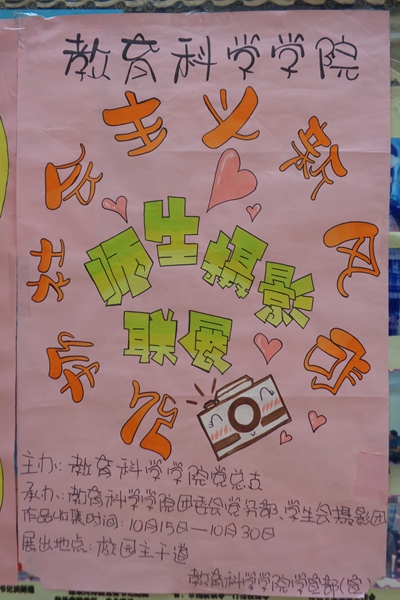 教育科学学院
弘扬社会主义新风尚
师生摄影
联展
主办:教育科学学院党总支
承办:教育科学学院团委会党务部、学生会摄影团
作品收集时间:10月15日—10月30日
展出地点:校园主干道
教育科学学院学宣部(宣